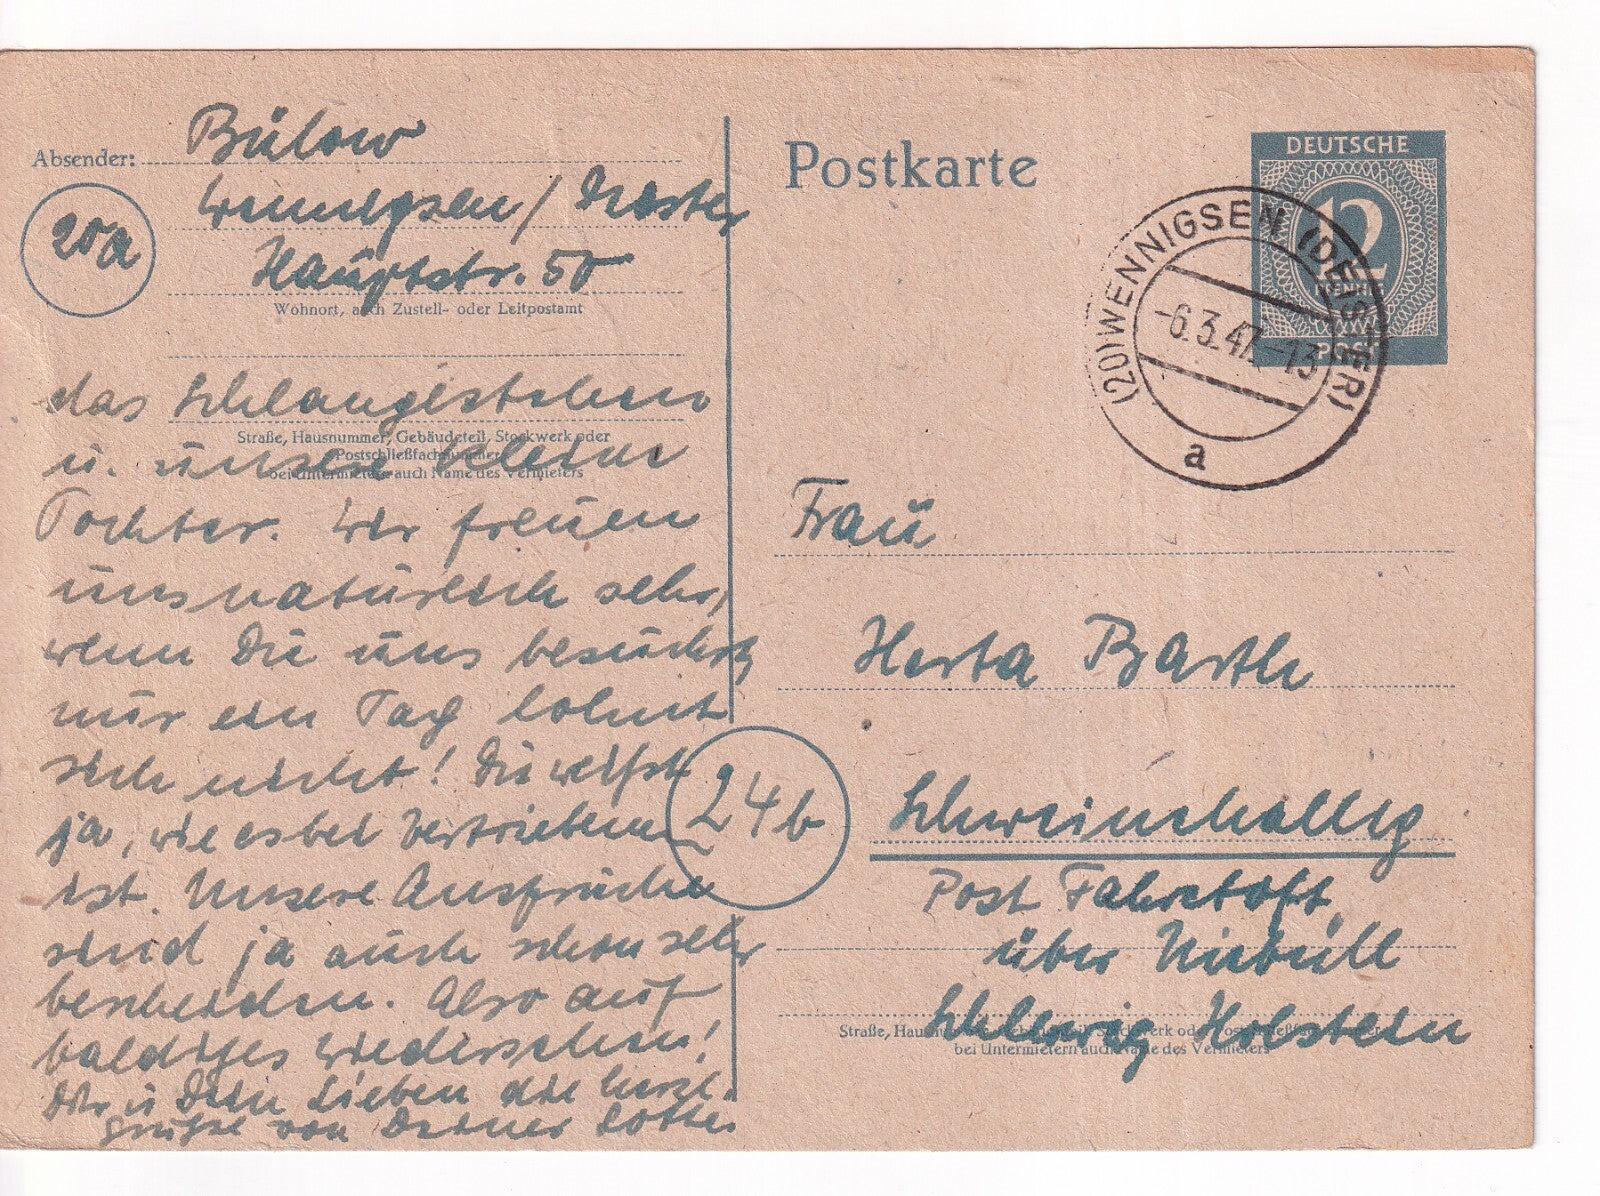 Absender: Bülow
Wennigsen / Deister
20a
Hauptstr. 50
Wohnort, auch Zustell- oder Leitpostamt
das Schlangestehen
Straße, Hausnummer, Gebäudeteil, Stockwerk oder
Postschließfachnummer
bei Untermietern auch Name des Vermieters
u. unsere kleine
Tochter. Wir freuen
uns natürlich sehr,
wenn Du uns besuchst,
nur ein Tag lohnt
sich nicht! Du weißt
ja, wie es bei Vertriebenen
ist. Unsere Ansprüche
sind ja auch schon sehr
bescheiden. Also auf
baldiges Wiedersehen!
Dir u Dein Lieben die herzl.
Grüße von Deiner Lotte.
Postkarte
DEUTSCHE
12
POST
(20) WENNIGSEN (DEISTER)
-6.3.47.-13
a
Frau
Herta Barth
24b
Schweinehallig
Post Fahretoft,
über Niebüll
Schleswig Holstein
Straße, Hausnummer, Gebäudeteil, Stockwerk oder Postschließfachnummer
bei Untermietern auch Name des Vermieters